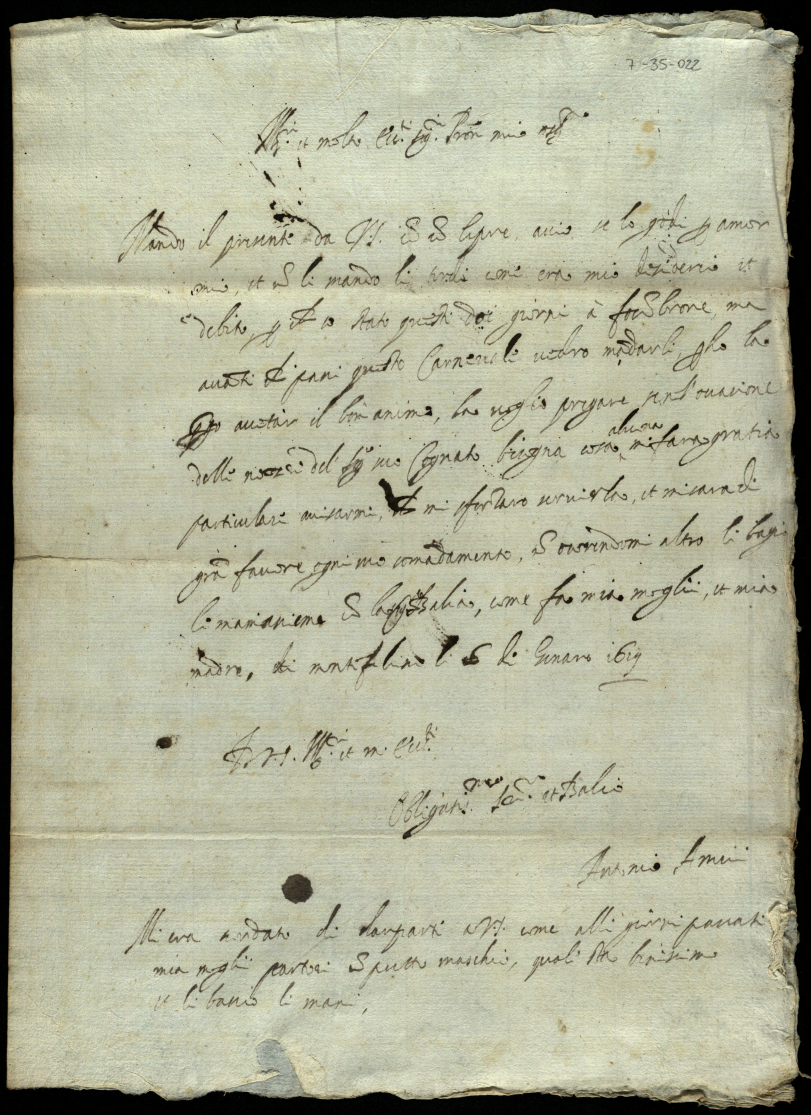 7-35-022
Ill.re et molto Ecc.te Sig.r Pron mio oss.mo
Mando il presente da V.S. co lepre, accio se lo godi p amor
mio, et no li mando li tordi come era mio desiderio et
debito, p stato questi doi giorni à fosobrone, ma
avati che passi questo Carnevale vedro madarli, la
accetar il bon animo, la voglio pregare, se in l'ocasione
delle nozze del Sig.r suo Cognato bisogna cosa alcuna mi fara gratia
particulare avisarmi, che mi sforzaro servirla, et mi sara di
gra favore ogni suo comadamento, no ocorendomi altro li bagio
le mani asieme co la Sig.ra balia, come fa mia moglie, et mia
madre, di li 6 di Genaro 1619
Di V.S. Ill.re et m. Ecc.te
Obligatis.mo Ser.re et
Antonio
Mi era scordato di dar parte a V.S. come alli giorni passati
mia moglie partori putto maschio, quale sta benissimo
et li bacio li mani,